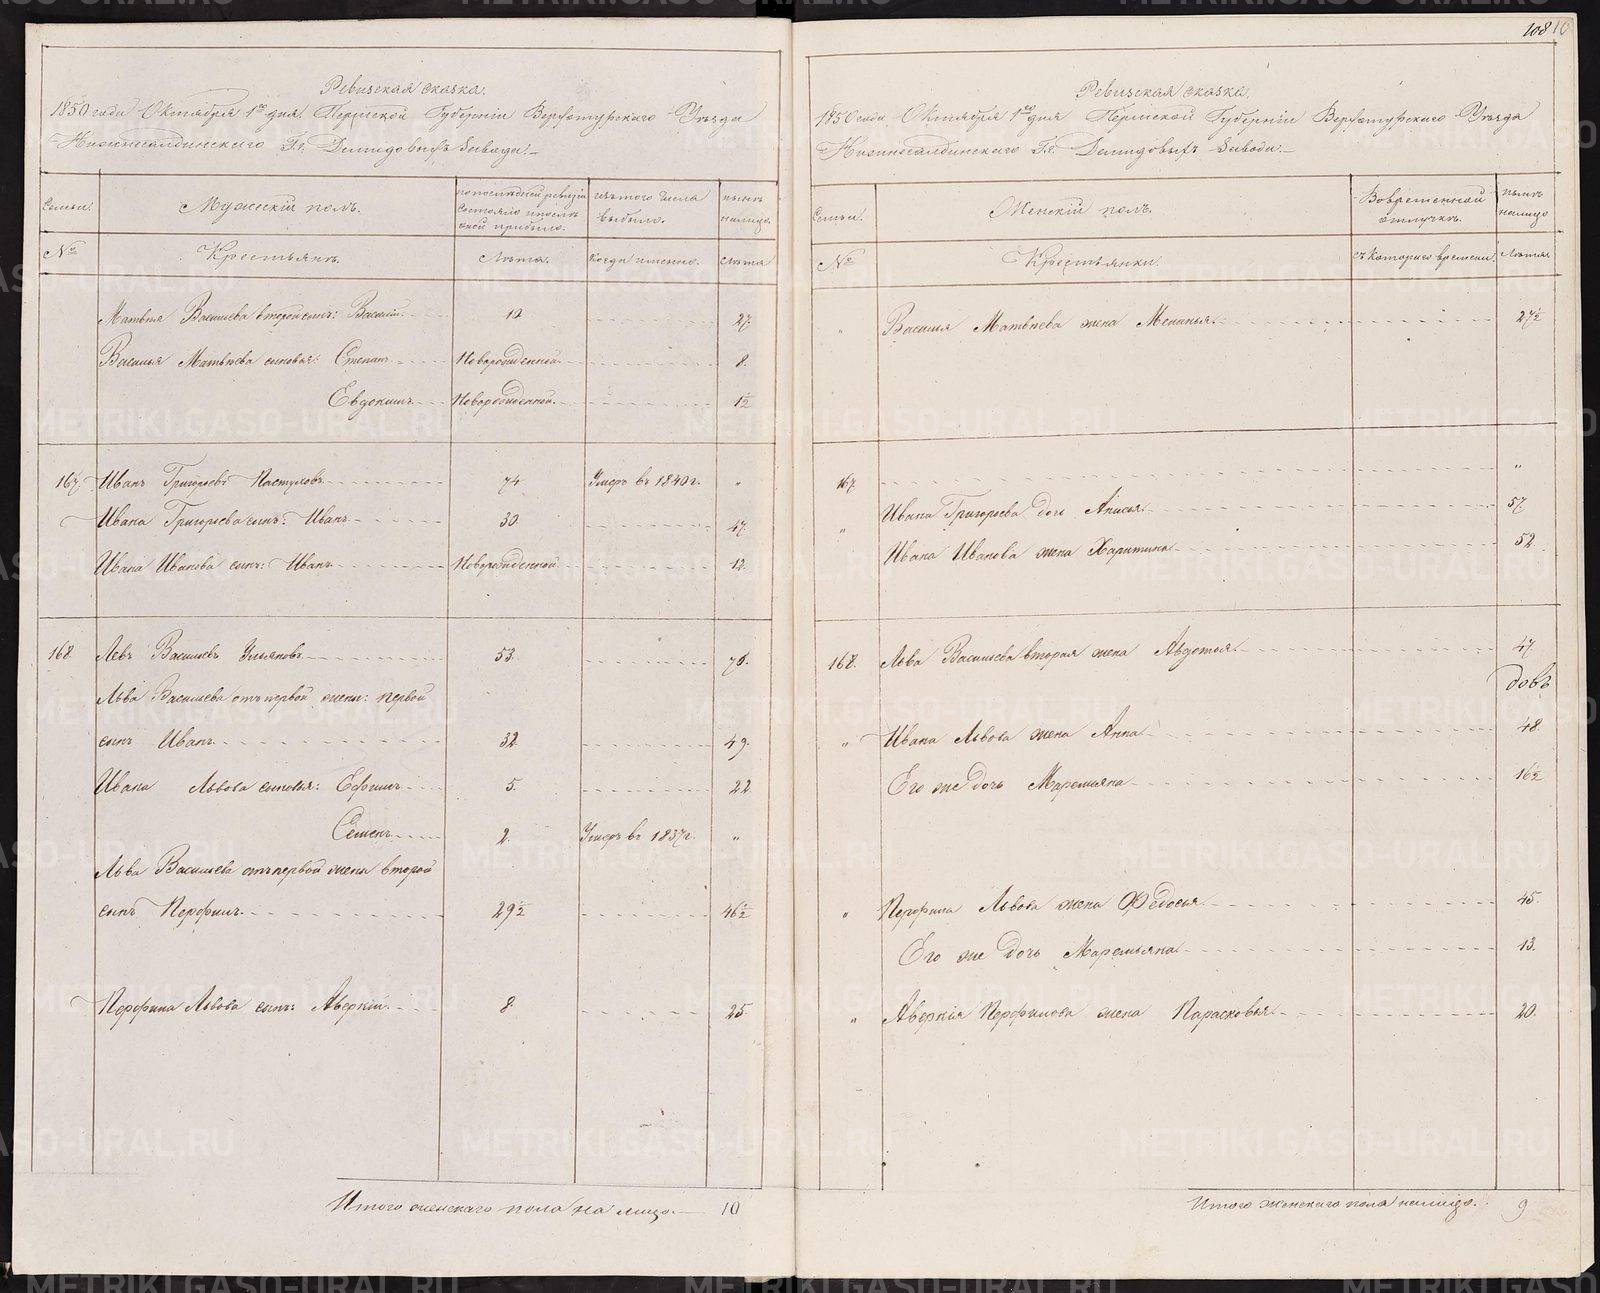 Ревизская сказка.
1850 года Октября 1го дня Пермской Губерніи Верхотурскаго Уѣзда
Нижнесалдинскаго Гг. Демидовыхъ Завода.
Семьи. Мужескій полъ. По последней ревизіи состояло и после оной прибыло. Изъ того числа выбыло. Нынѣ налицо.
№ Крестьянъ. Лѣта. Когда именно. Лѣта
Матвѣя Васильева второй сынъ: Василій 10 27
Василья Матвѣева сыновья: Степанъ Новорожденной 8.
Евдокимъ Новорожденной 1½
167. Иванъ Григорьевъ Пастуховъ 74 Умеръ въ 1840г. „
Ивана Григорьева сынъ: Иванъ 30. 47.
Ивана Иванова сынъ: Иванъ Новорожденной 12.
168. Левъ Васильевъ Ульяновъ 53. 70.
Льва Васильева отъ первой жены: первой
сынъ Иванъ 32 49.
Ивана Львова сыновья: Ефимъ 5. 22
Семенъ 2. Умеръ въ 1837г. „
Льва Васильева отъ первой жены второй
сынъ Перфилъ 29½ 46½
Перфила Львова сынъ: Аверкій 8. 25
Итого женскаго пола на лицо. 10
108
Ревизская сказка.
1850 года Октября 1го дня Пермской Губерніи Верхотурскаго Уѣзда
Нижнесалдинскаго Гг. Демидовыхъ Завода.
Семьи. Женскій полъ. Во временной отлучкѣ. Нынѣ налицо
№ Крестьянки. Съ котораго времени. Лѣта
„ Василья Матвѣева жена Меланья 27½
167 „
„ Ивана Григорьева дочь Анисья 57.
Ивана Иванова жена Харитина 52
168. Льва Васильева вторая жена Авдотья 47
довъ
„ Ивана Львова жена Анна 48.
Его же дочь Маремьяна 16½
„ Перфила Львова жена Федосья 45.
Его же дочь Маремьяна 13.
„ Аверкія Перфилова жена Парасковья 20.
Итого женскаго пола налицо. 9
METRIKI.GASO-URAL.RU